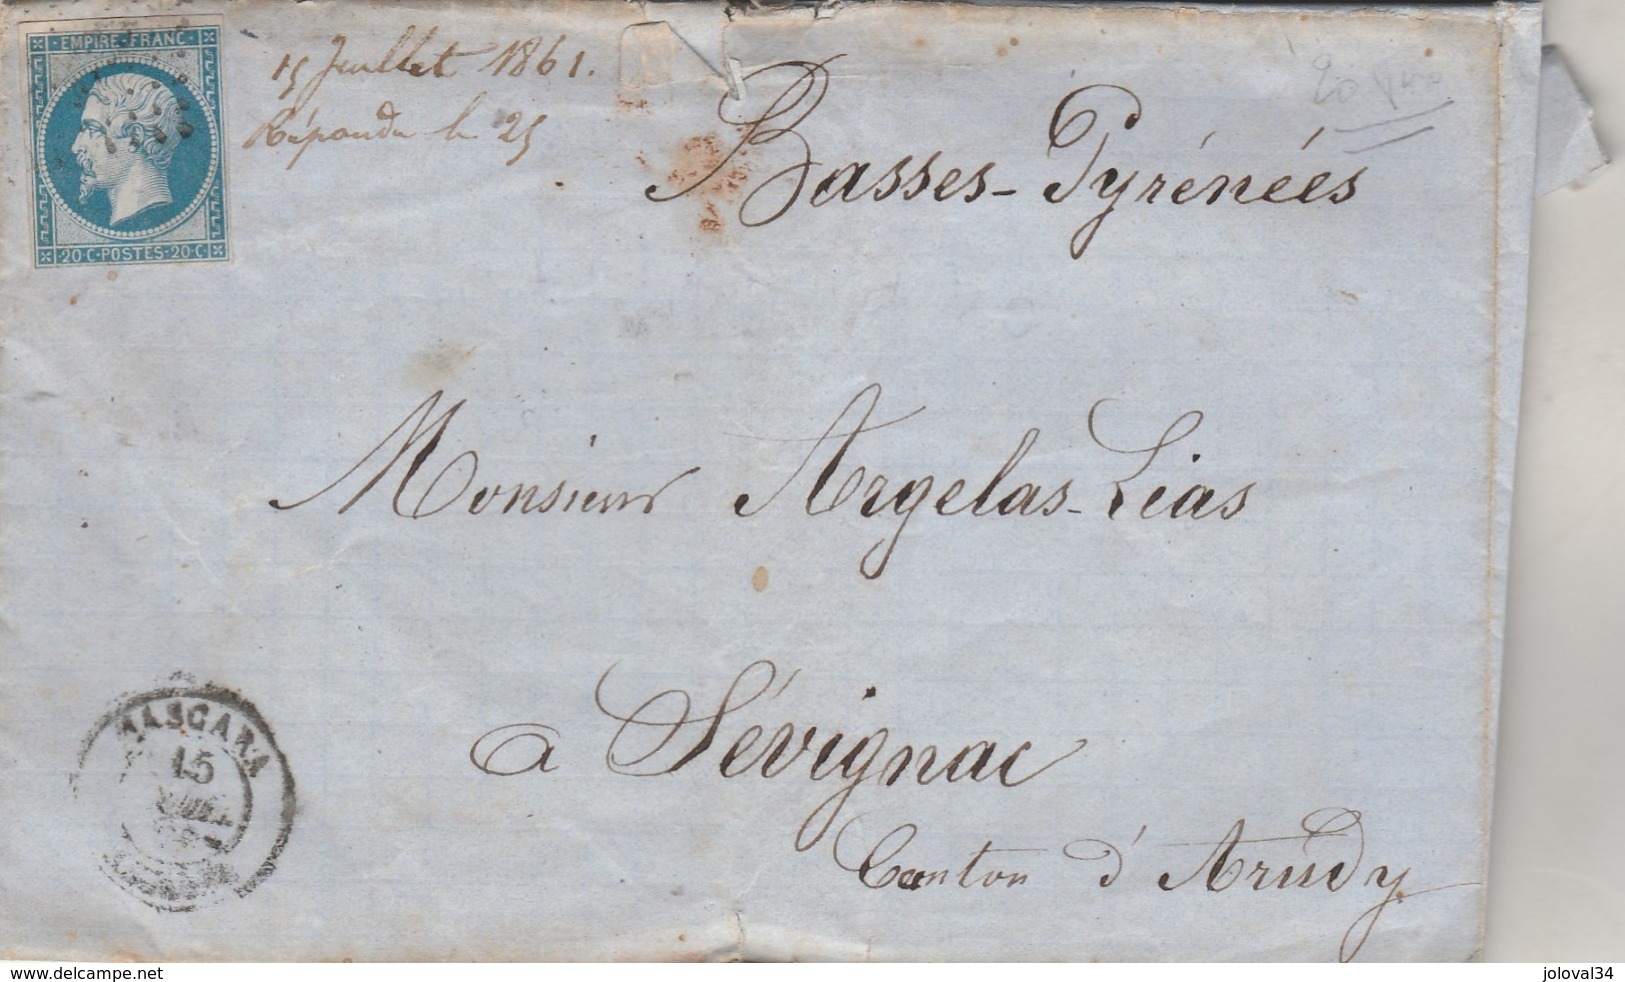 EMPIRE FRANC
20 C POSTES 20 C
15 Juillet 1861.
Répondu le 25
Basses-Pyrénées
Monsieur Argelas-Lias
a Sévignac
Canton d'Arudy
MASCARA
15
JUIL
delcampe.net
joloval34